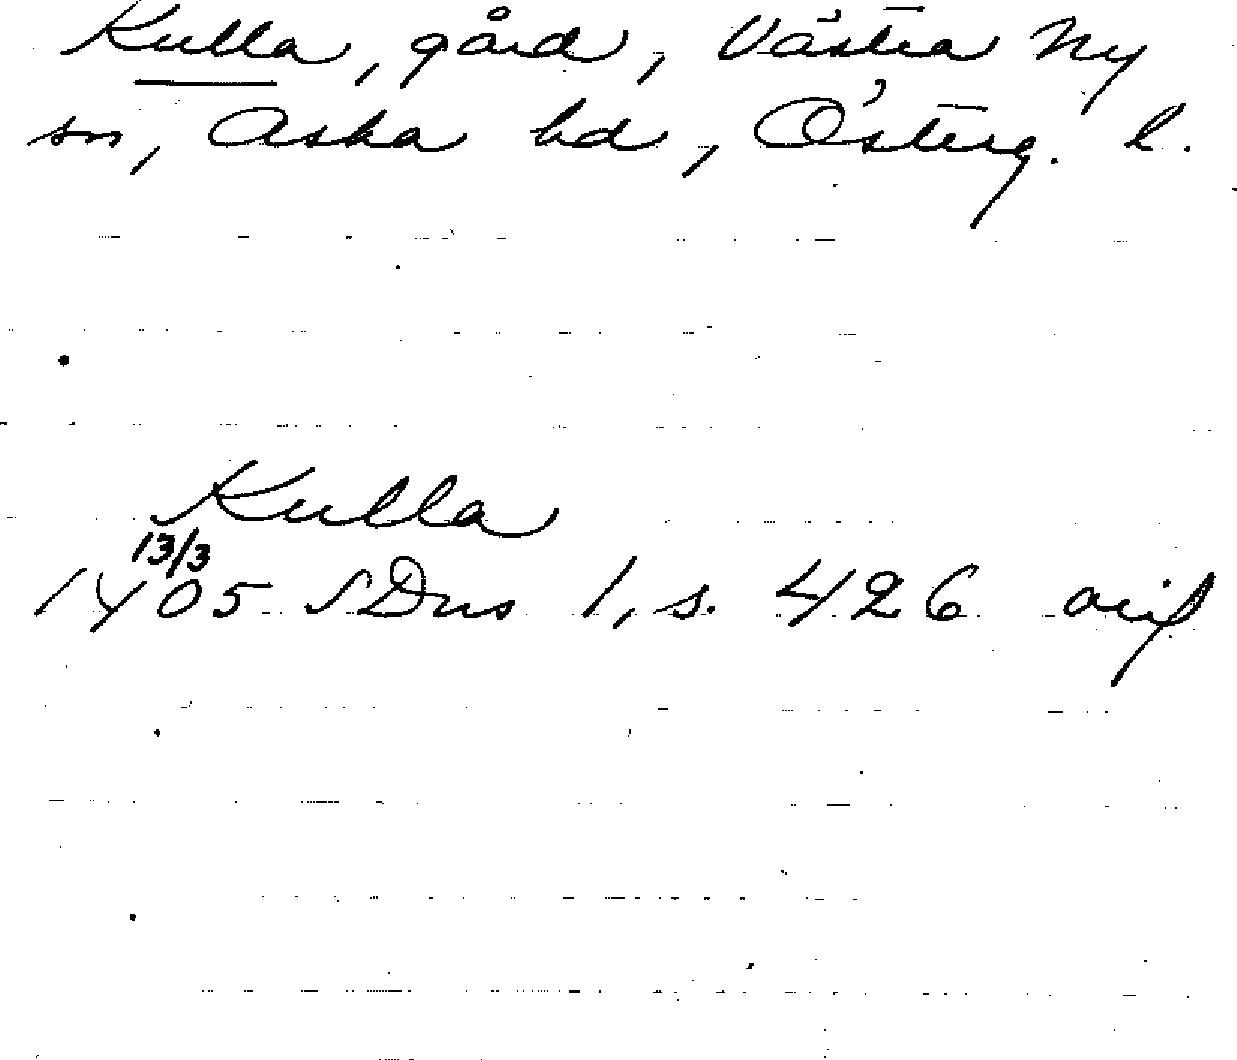 Kulla, gård, Västra Ny
sn, Aska hd, Österg. l.
Kulla
13/3
1405 SDns 1, s. 426 avif